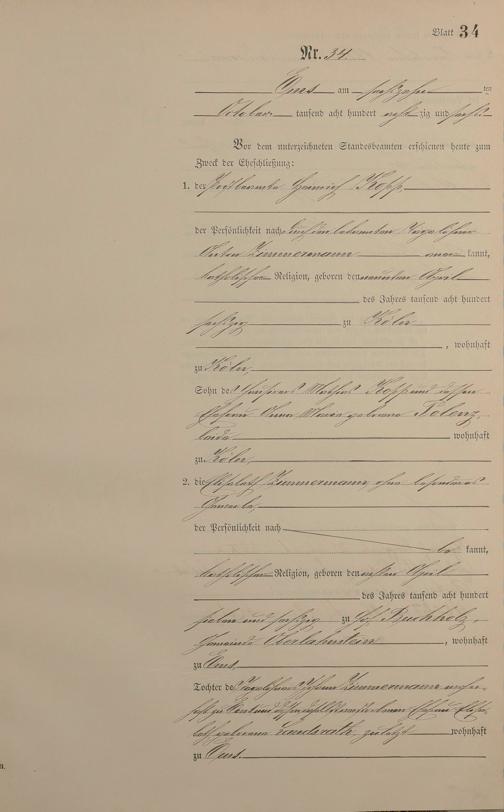 Blatt 34
Nr. 34.
Ems am sechszehn ten
October tausend acht hundert acht zig und sechs
Vor dem unterzeichneten Standesbeamten erschienen heute zum
Zweck der Eheschließung:
1. der Heinrich Kopp
der Persönlichkeit nach durch den bekannten Tagelöhner
Anton Zimmermann aner kannt,
katholischer Religion, geboren den neunten April
des Jahres tausend acht hundert
sechzig zu Köln
, wohnhaft
zu Köln,
Sohn des Mathias Kopp und dessen
Ehefrau Anna Maria geborene Polenz
beide wohnhaft
zu Köln,
2. die Elisabeth Zimmermann, ohne besonderes
Gewerbe,
der Persönlichkeit nach
be kannt,
katholischer Religion, geboren den ersten April
des Jahres tausend acht hundert
sieben und sechzig zu Hof Buchholz,
Gemeinde Oberlahnstein, wohnhaft
zu Ems,
Tochter des Tagelöhners Johann Zimmermann
zu Ems und dessen Ehefrau Elisa-
beth geborenen zuletzt wohnhaft
zu Ems.
n.